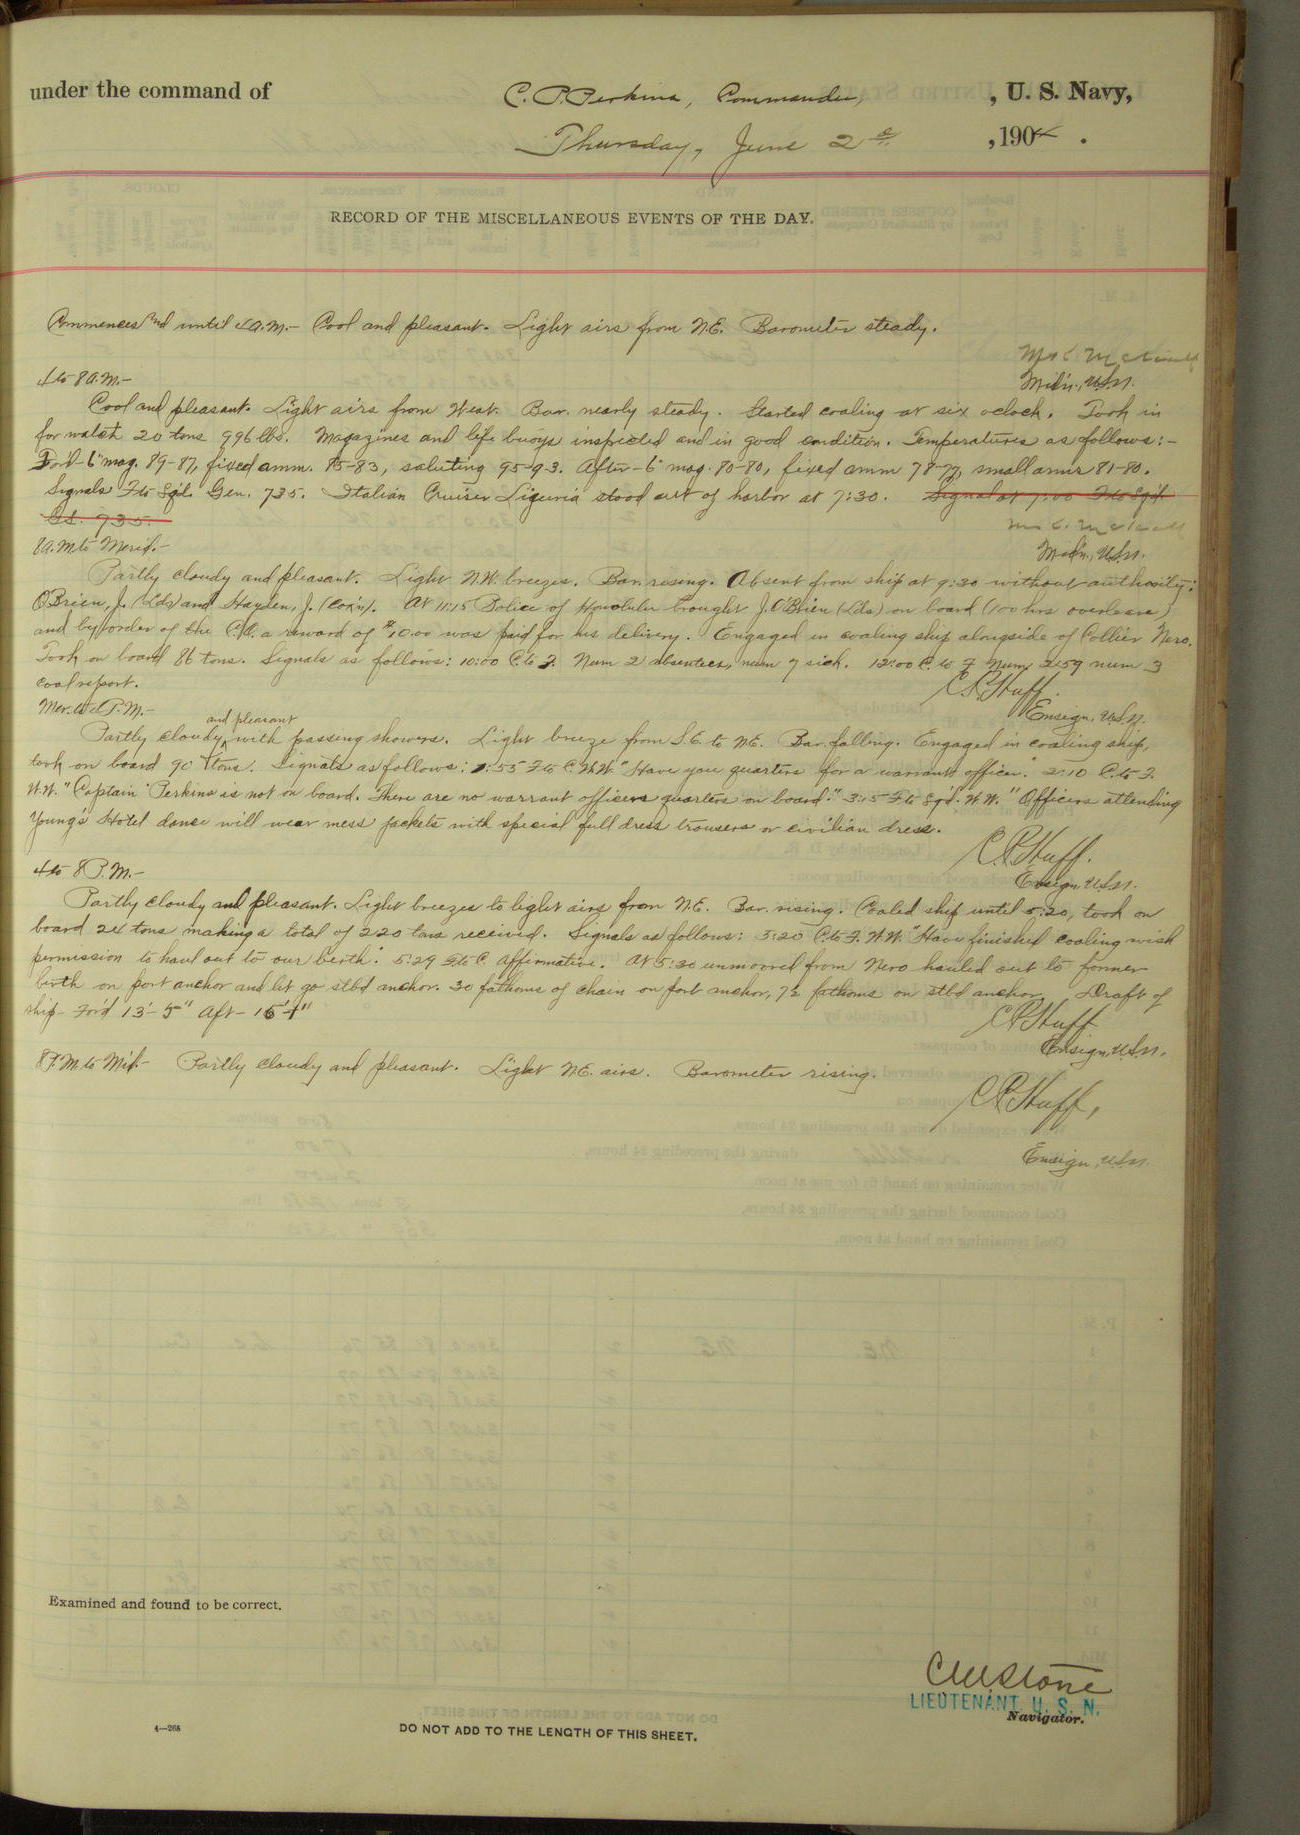 under the command of C. P. Perkins, Commander, , U. S. Navy,
Thursday, June 2d , 1904 .
RECORD OF THE MISCELLANEOUS EVENTS OF THE DAY.
Commences and until 4 a.m.- Cool and pleasant. Light airs from N.E. Barometer steady.
Mid'n., U.S.N.
4 to 8 A.M.-
Cool and pleasant. Light airs from West. Bar. nearly steady. Started coaling at six oclock. Took in
for watch 20 tons 996 lbs. Magazines and life buoys inspected and in good condition. Temperatures as follows:-
For'd- 6" mag. 89-87, fixed amm. 85-83, saluting 95-93. After- 6" mag. 80-80, fixed amm 78-77, small arms 81-80.
Signals F to Sqd. Gen. 735. Italian Cruiser Liguria stood out of harbor at 7:30. Signal at 7:00 F to Sq'd.
Gl. 735.
Mid'n., U.S.N.
8 A.M. to Merid.-
Partly cloudy and pleasant. Light N.W. breezes. Bar. rising. Absent from ship at 9:30 without authority:
O'Brien, J. (Lds) and Hayden, J. (Cox'n). At 11:15 Police of Honolulu brought J. O'Brien (Lds) on board (100 hrs overleave)
and by order of the C.O. a reward of $10.00 was paid for his delivery. Engaged in coaling ship alongside of Collier Nero.
Took on board 86 tons. Signals as follows: 10:00 C. to F. Num 2 absentees, num 7 sick. 12:00 C. to F Num 259 num 3
coal report.
C.P. Huff.
Ensign, U.S.N.
Mer. to 4 P.M.-
Partly cloudy and pleasant with passing showers. Light breeze from S.E. to N.E. Bar. falling. Engaged in coaling ship,
took on board 90 tons. Signals as follows: 1:55 F to C. W.W. "Have you quarters for a warrant officer." 2:10 C. to F.
W.W. "Captain Perkins is not on board. There are no warrant officers quarters on board." 3:15 F to Sq'd. W.W. "Officers attending
Youngs Hotel dance will wear mess jackets with special full dress trousers or civilian dress.
C.P. Huff.
Ensign, U.S.N.
4 to 8 P.M.-
Partly cloudy and pleasant. Light breezes to light airs from N.E. Bar. rising. Coaled ship until 5:20, took on
board 24 tons making a total of 220 tons received. Signals as follows: 5:20 C. to F. W.W. "Have finished coaling wish
permission to haul out to our berth". 5:29 F to C. Affirmative. At 5:30 unmoored from Nero hauled out to former
birth on port anchor and let go stbd anchor. 30 fathoms of chain on port anchor, 7½ fathoms on stbd anchor. Draft of
ship- For'd 13'-5" Aft- 16'-1"
C.P. Huff
Ensign, U.S.N.
8 P.M. to Mid- Partly cloudy and pleasant. Light N.E. airs. Barometer rising.
C.P. Huff,
Ensign, U.S.N.
Examined and found to be correct.
C M Stone
LIEUTENANT, U. S. N.
Navigator.
4—268
DO NOT ADD TO THE LENGTH OF THIS SHEET.